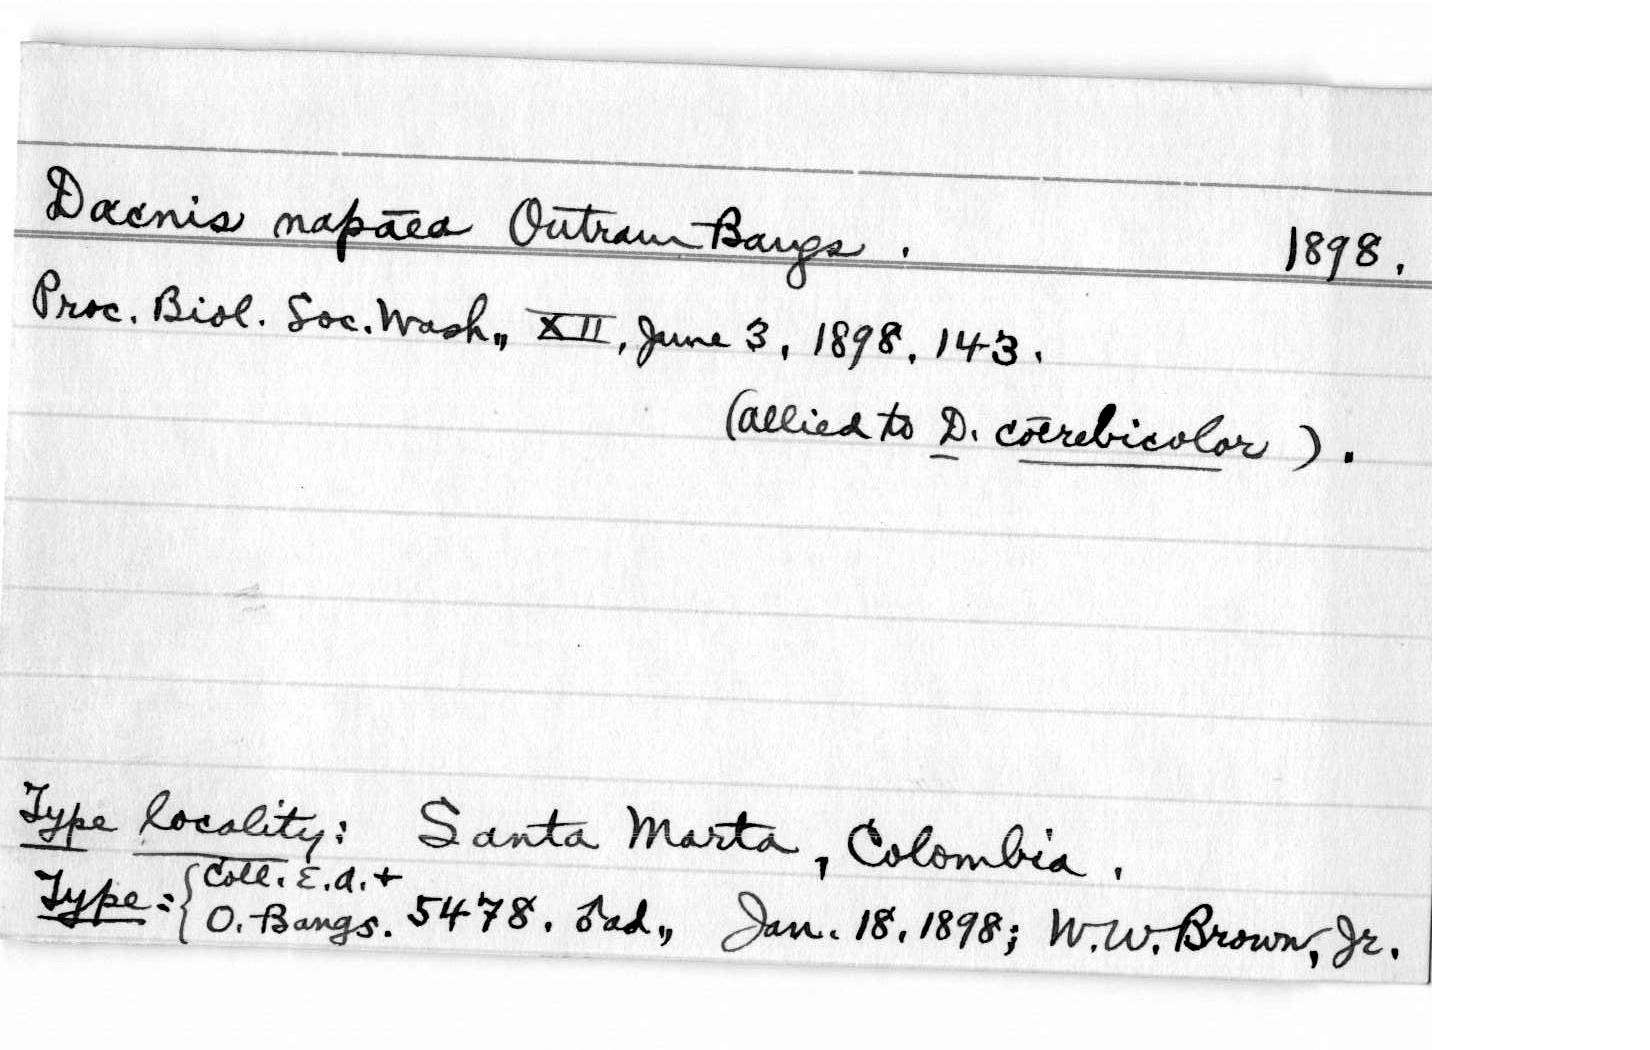 Dacnis napāea Outram Bangs. 1898.
Proc. Biol. Soc. Wash., XII, June 3, 1898, 143.
(allied to D. cōerebicolor).
Type locality: Santa Marta, Colombia.
Type: { Coll. E.A. +
O. Bangs. 5478. ♂ ad., Jan. 18, 1898; W.W. Brown, Jr.